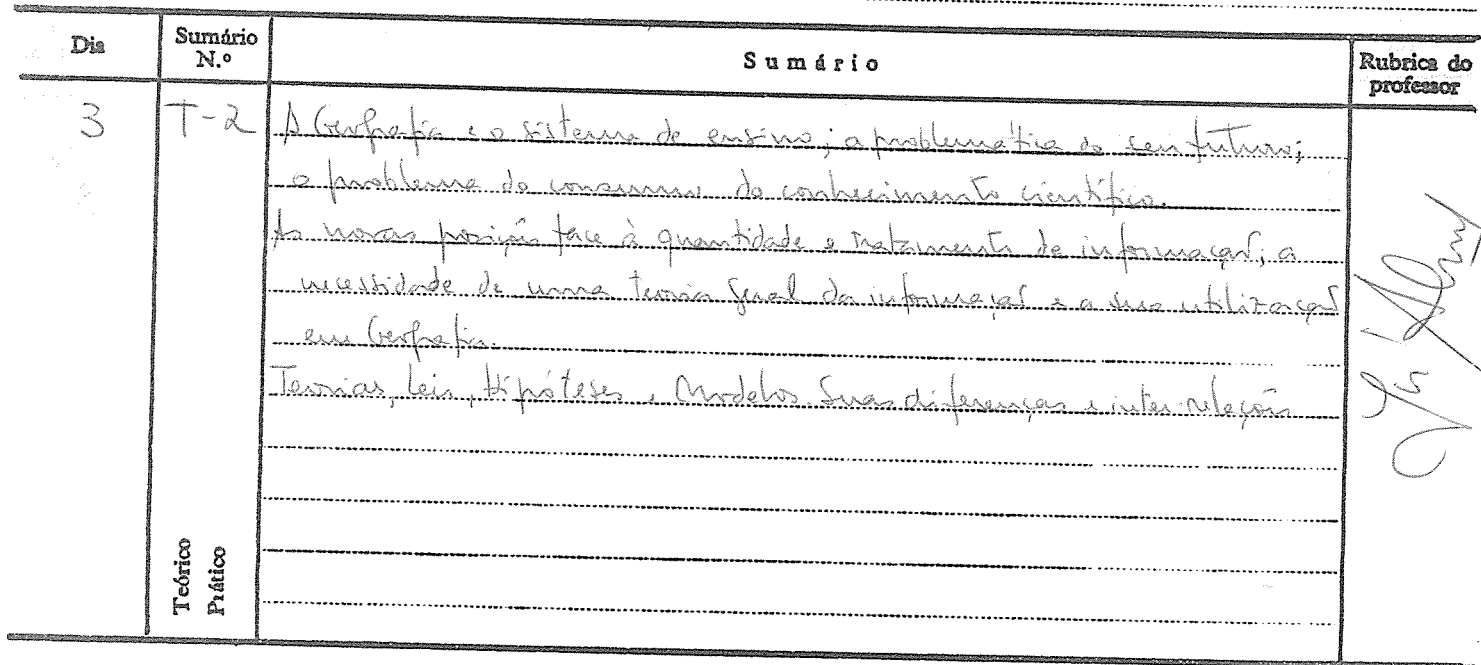 Dia
Sumário N.º
Sumário
Rubrica do professor
3
T-2
A Geografia e o sistema de ensino; a problemática do seu futuro;
o problema do consumo do conhecimento científico.
As novas posições face à quantidade e tratamento de informação; a
necessidade de uma teoria geral da informação e a sua utilização
em Geografia.
Teorias, leis, Hipóteses e Modelos. Suas diferenças e inter-relações
Teórico
Prático